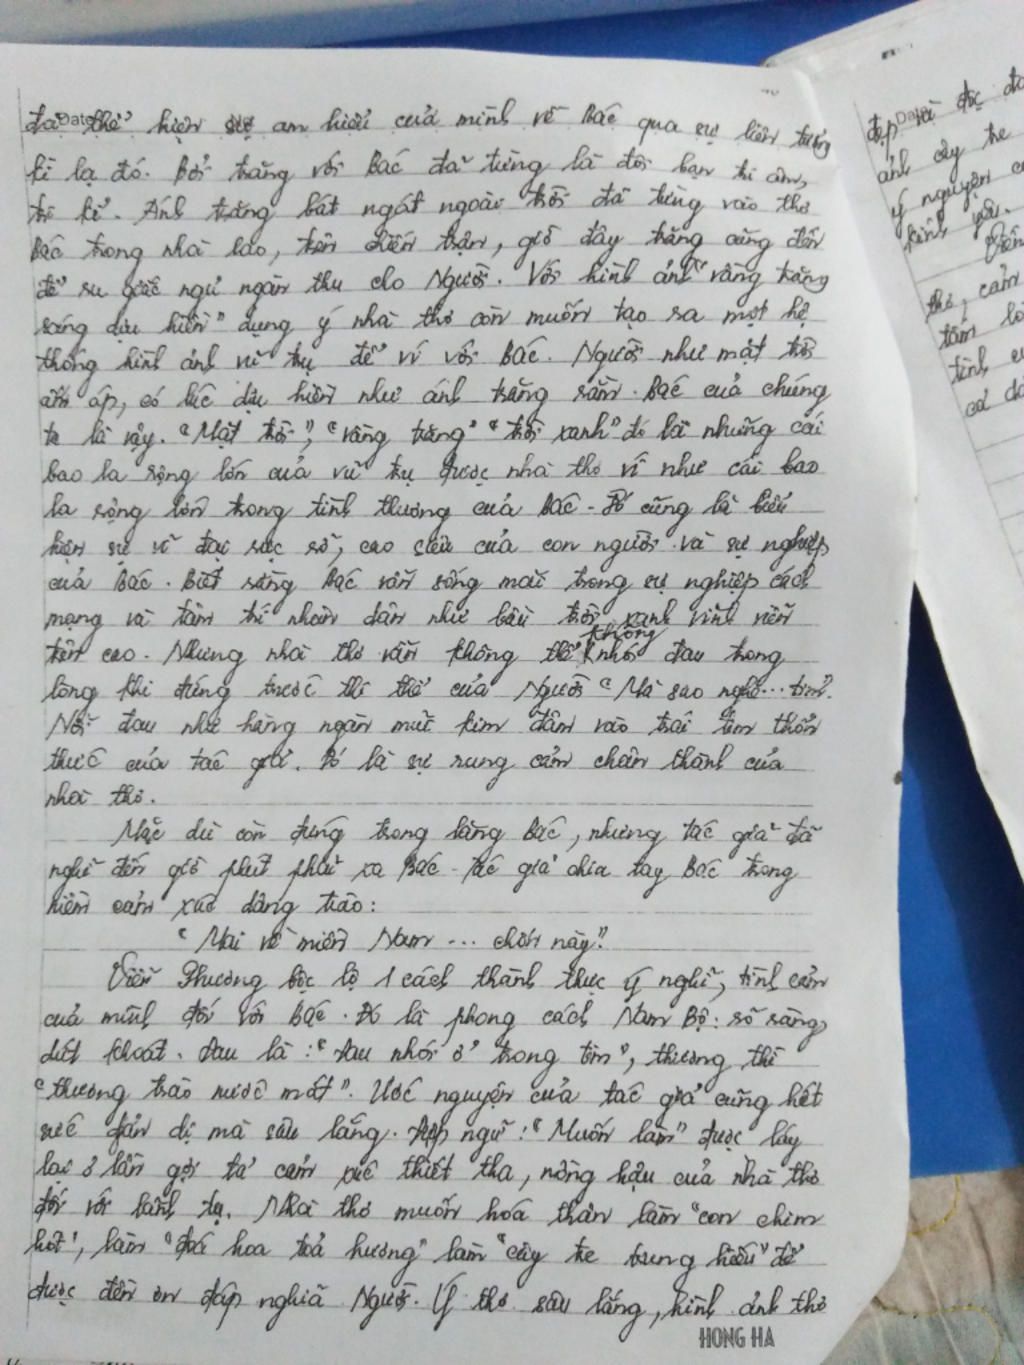 đã thể hiện sự am hiểu của mình về Bác qua sự liên tưởng
kì lạ đó. Bởi trăng với Bác đã từng là đôi bạn tri âm,
tri kỉ. Ánh trăng bát ngát ngoài trời đã từng vào thơ
Bác trong nhà lao, trên chiến trận, giờ đây trăng cũng đến
để ru giấc ngủ ngàn thu cho Người. Với hình ảnh "vầng trăng
sáng dịu hiền" dụng ý nhà thơ còn muốn tạo ra một hệ
thống hình ảnh vũ trụ để ví với Bác. Người như mặt trời
ấm áp, có lúc dịu hiền như ánh trăng rằm. Bác của chúng
ta là vậy. "Mặt trời", "vầng trăng" "trời xanh" đó là những cái
bao la rộng lớn của vũ trụ được nhà thơ ví như cái bao
la rộng lớn trong tình thương của Bác - Đó cũng là biểu
hiện sự vĩ đại rực rỡ, cao siêu của con người và sự nghiệp
của Bác. Biết rằng Bác vẫn sống mãi trong sự nghiệp cách
mạng và tâm trí nhân dân như bầu trời xanh vĩnh viễn
trên cao. Nhưng nhà thơ vẫn không thể không nhói đau trong
lòng khi đứng trước thi thể của Người "Mà sao nghe... tim".
Nỗi đau như hàng ngàn mũi kim đâm vào trái tim thổn
thức của tác giả. Đó là sự rung cảm chân thành của
nhà thơ.
Mặc dù còn đứng trong lăng Bác, nhưng tác giả đã
nghĩ đến giờ phút phải xa Bác - tác giả chia tay Bác trong
niềm cảm xúc dâng trào:
"Mai về miền Nam ... chốn này"
Viễn Phương bộc lộ 1 cách thành thực ý nghĩ, tình cảm
của mình đối với Bác. Đó là phong cách Nam Bộ: rõ ràng,
dứt khoát. Đau là: "đau nhói ở trong tim", thương thì
"thương trào nước mắt". Ước nguyện của tác giả cũng hết
sức giản dị mà sâu lắng. Điệp ngữ: "Muốn làm" được láy
lại 3 lần gợi tả cảm xúc thiết tha, nồng hậu của nhà thơ
đối với lãnh tụ. Nhà thơ muốn hóa thân làm "con chim
hót", làm "đoá hoa toả hương" làm "cây tre trung hiếu" để
được đền ơn đáp nghĩa Người. Ý thơ sâu lắng, hình ảnh thơ
HONG HA
Date
đẹp và độc đá
ảnh cây tre
ý nguyện c
kính yêu.
Viễn
thơ, cảm
tấm lò
tình c